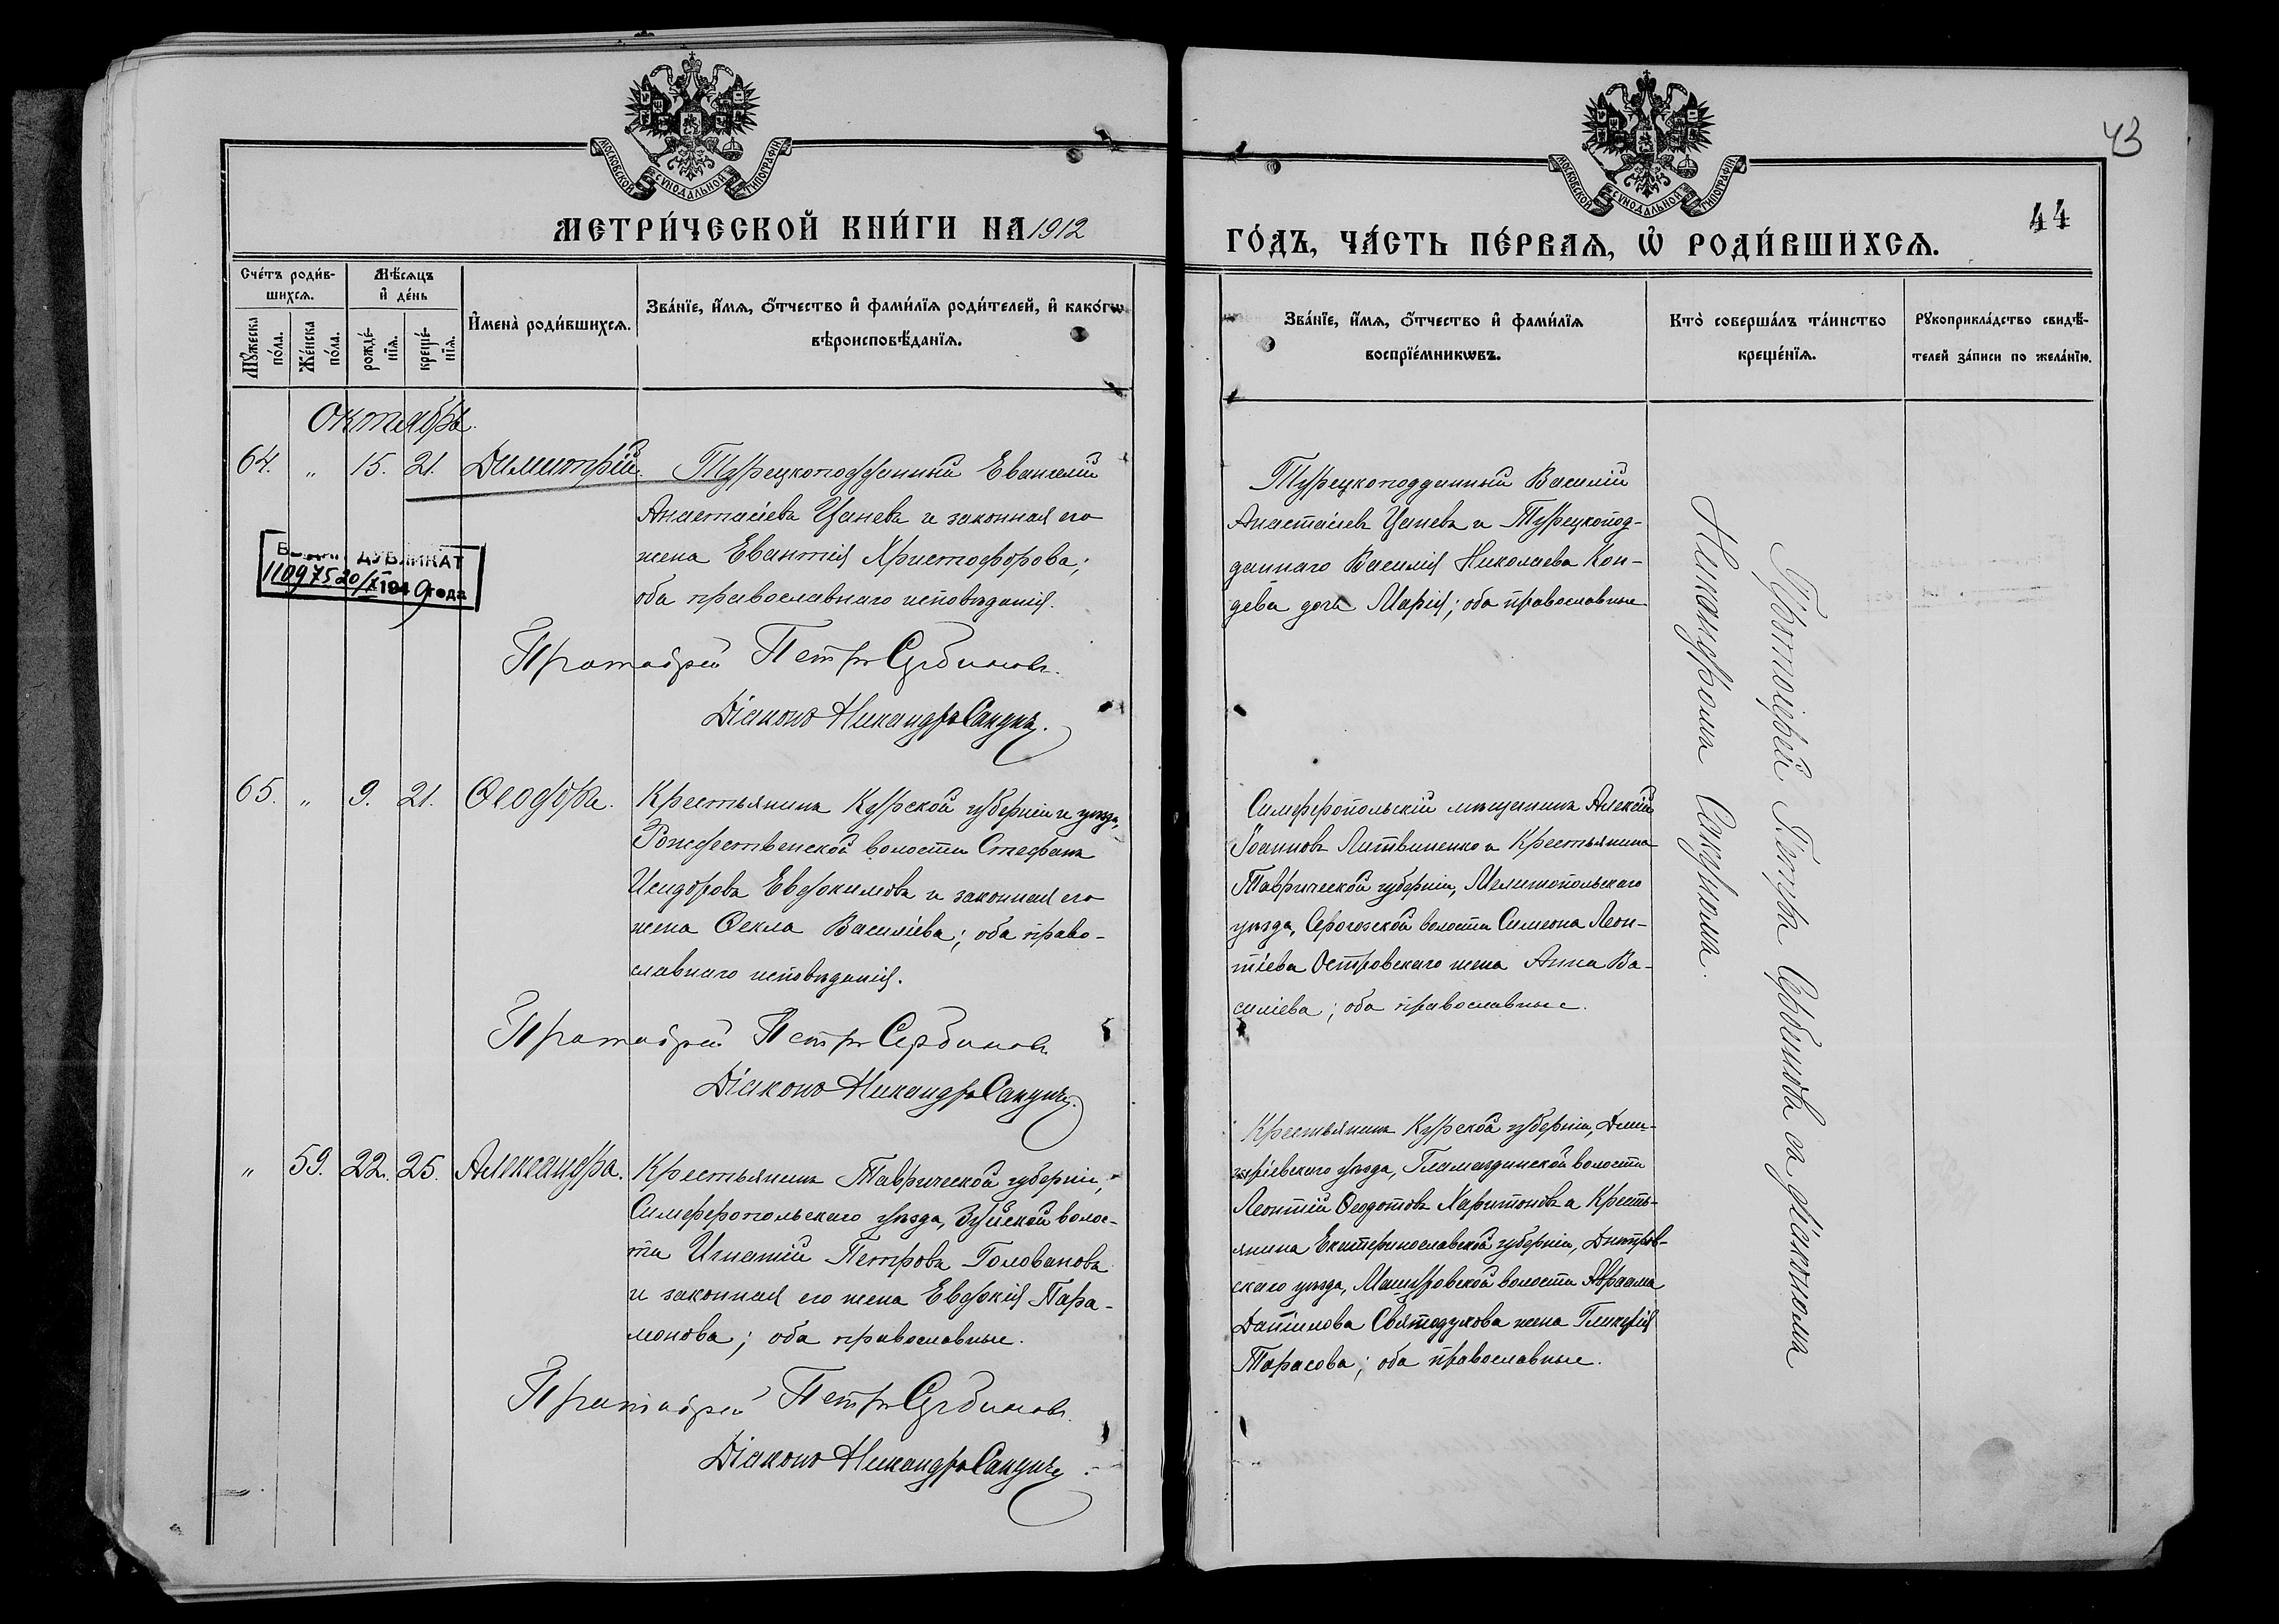 МОСКОВСКОЙ СѴНОДАЛЬНОЙ ТИПОГРАФІИ
МЕТРИ́ЧЕСКОЙ КНИ́ГИ НА 1912
Сче́тъ роди́в-
шихся.
Мѣ́сяцъ
и҆ де́нь
Мꙋ́жеска
по́ла.
Же́нска
по́ла.
рожде́-
нїя.
креще́-
нїя.
И҆мена̀ роди́вшихся.
Зва́нїе, и҆́мя, ѻ҆́тчество и҆ фами́лїя роди́телей, и҆ како́гѡ
вѣроисповѣ́данїя.
Октября.
64. „ 15. 21. Димитрій. Турецкоподданный Евангелій
Анастасіевъ Цаневъ и законная его
жена Евантія Христофорова;
оба православнаго исповѣданія.
ДУБЛИКАТ
110975 20/X 1949 года
Протоіерей Петръ Сербиновъ.
Діаконъ Никандръ Сакунъ.
65. „ 9. 21. Ѳеодоръ. Крестьянинъ Курской губерніи и уѣзда,
Рождественской волости Стефанъ
Исидоровъ Евдокимовъ и законная его
жена Ѳекла Василіева; оба право-
славнаго исповѣданія.
Протоіерей Петръ Сербиновъ
Діаконъ Никандръ Сакунъ.
„ 59. 22. 25. Александра. Крестьянинъ Таврической губерніи,
Симферопольскаго уѣзда, Зуйской волос-
ти Игнатій Петровъ Головановъ
и законная его жена Евдокія Пара-
монова; оба православные.
Протоіерей Петръ Сербиновъ.
Діаконъ Никандръ Сакунъ.
43
МОСКОВСКОЙ СѴНОДАЛЬНОЙ ТИПОГРАФІИ
44
ГО́ДЪ, ЧА́СТЬ ПЕ́РВАЯ, Ѡ҆ РОДИ́ВШИХСЯ.
Зва́нїе, и҆́мя, ѻ҆́тчество и҆ фами́лїя
воспрїе́мникѡвъ.
Кто̀ соверша́лъ та́инство
креще́нїя.
Рꙋкоприкла́дство свидѣ́-
телей за́писи по жела́нїю.
Турецкоподданный Василій
Анастасіевъ Цаневъ и Турецкопод-
даннаго Василія Николаева Кон-
дева дочь Марія; оба православные
Симферопольскій мѣщанинъ Алексій
Іоанновъ Литвиненко и Крестьянина
Таврической губерніи, Мелитопольскаго
уѣзда, Серогозской волости Симеона Леон-
тіева Островскаго жена Анна Ва-
силіева; оба православные.
Крестьянинъ Курской губерніи, Дми-
тріевскаго уѣзда, Гламаздинской волости
Леонтій Ѳеодотовъ Харитоновъ и Кресть-
янина Екатеринославской губерніи, Днѣпров-
скаго уѣзда, волости Авраама
Даніилова жена Гликерія
Тарасова; оба православные.
Протоіерей Петръ Сербиновъ съ діакономъ
Никандромъ Сакуномъ.